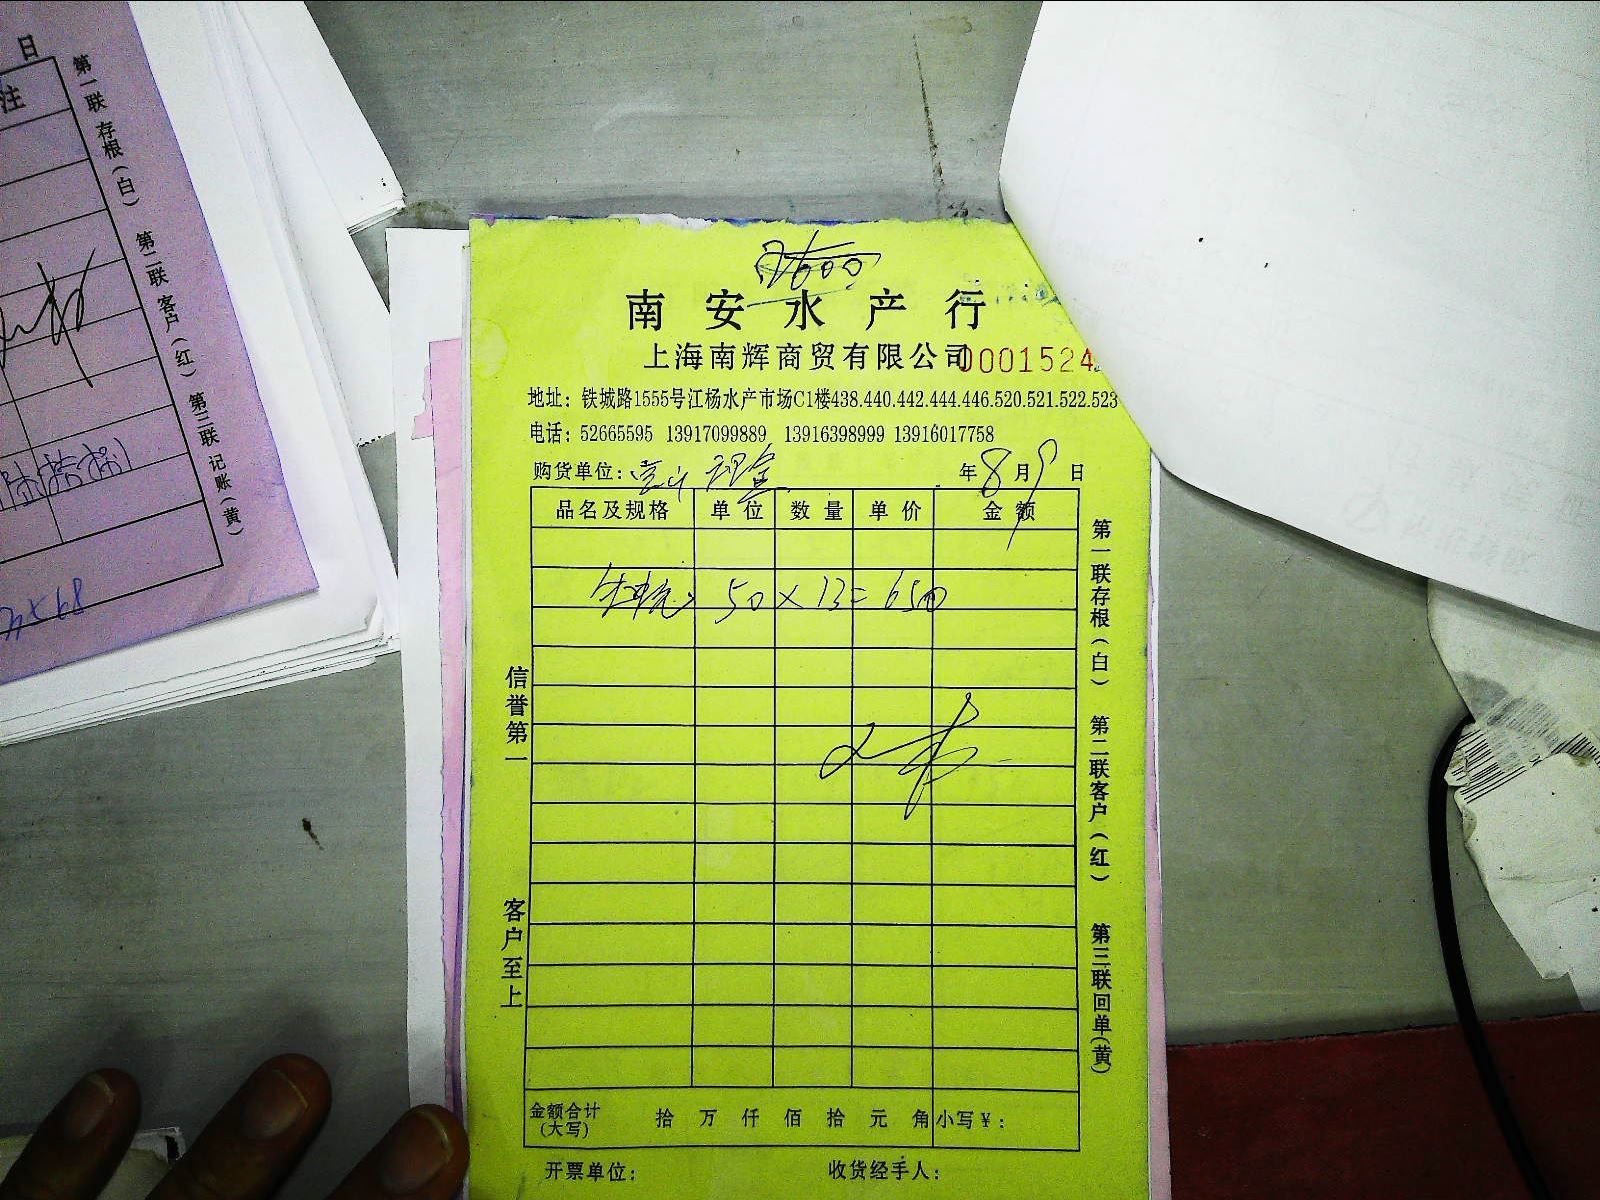 南安水产行
上海南辉商贸有限公司 0001524
地址：铁城路1555号江杨水产市场C1楼438.440.442.444.446.520.521.522.523
电话：52665595 13917099889 13916398999 13916017758
购货单位： 年8月9日
品名及规格 单位 数量 单价 金额
50×13=650
信誉第一
客户至上
第一联存根（白） 第二联客户（红） 第三联回单（黄）
金额合计（大写） 拾 万 仟 佰 拾 元 角 小写￥：
开票单位： 收货经手人：
日
注
第一联 存根（白） 第二联 客户（红） 第三联 记账（黄）